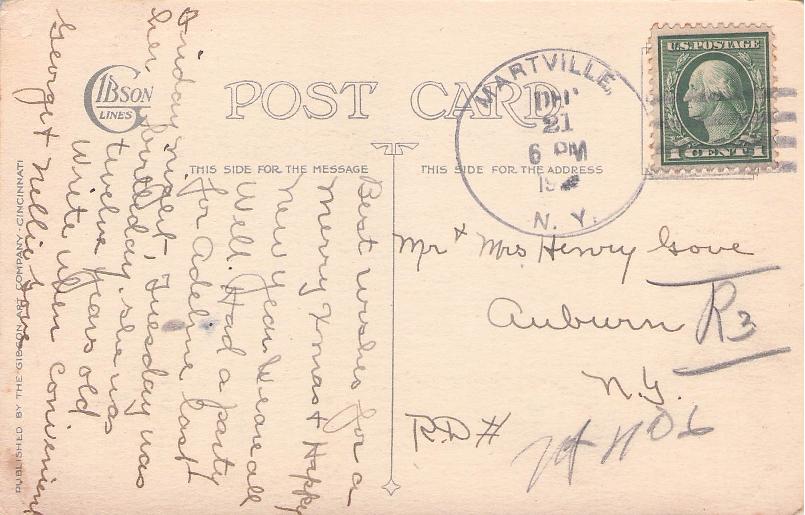 GIBSON
LINES
POST CARD
THIS SIDE FOR THE MESSAGE
THIS SIDE FOR THE ADDRESS
PUBLISHED BY THE GIBSON ART COMPANY - CINCINNATI
MARTVILLE,
DEC
21
6 PM
N. Y.
U.S. POSTAGE
1 CENT 1
Mr + Mrs Henry Gove
Auburn R3
N.Y.
R.D #
Best wishes for a
Merry Xmas + Happy
New year. We are all
well. Had a party
for Adeline last
Friday night. Tuesday was
her birthday, she was
twelve years old
Write when convenient
George + Nellie Gove